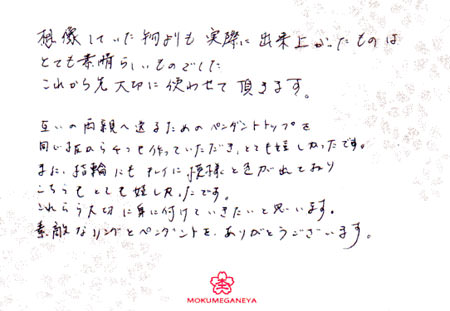 想像していた何よりも実際に出来上がったものは
とても素晴らしいものでした
これから先大切に使わせて頂きます。
互いの両親へ送るためのペンダントトップを
同じ板から4つも作っていただき、とても嬉しかったです。
また、指輪にもキレイに模様と色がでており
こちらもとても嬉しかったです。
これから大切に身に付けていきたいと思います。
素敵なリングとペンダントを、ありがとうございます。
MOKUMEGANEYA